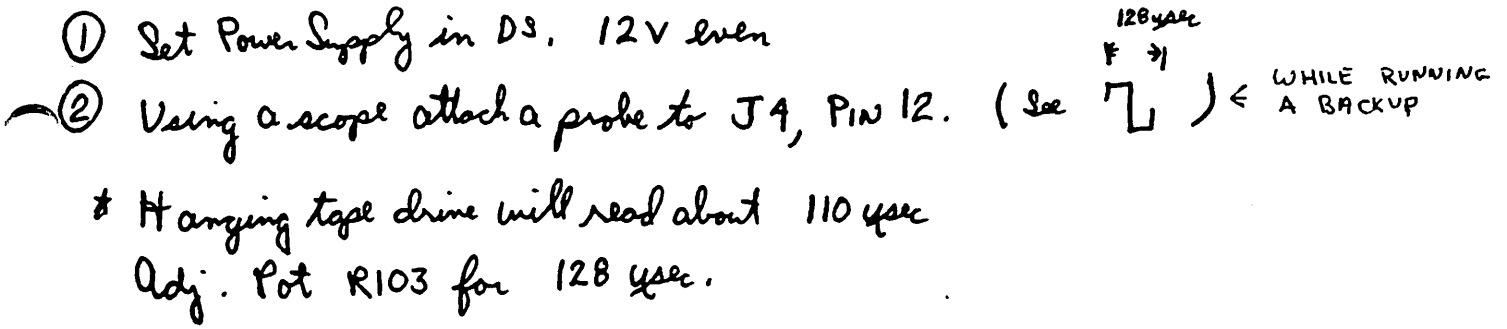 128 µsec
① Set Power Supply in DS. 12V even
② Using a scope attach a probe to J4, PIN 12. (See ) ← WHILE RUNNING
A BACKUP
* Hanging tape drive will read about 110 µsec
Adj. Pot R103 for 128 µsec.